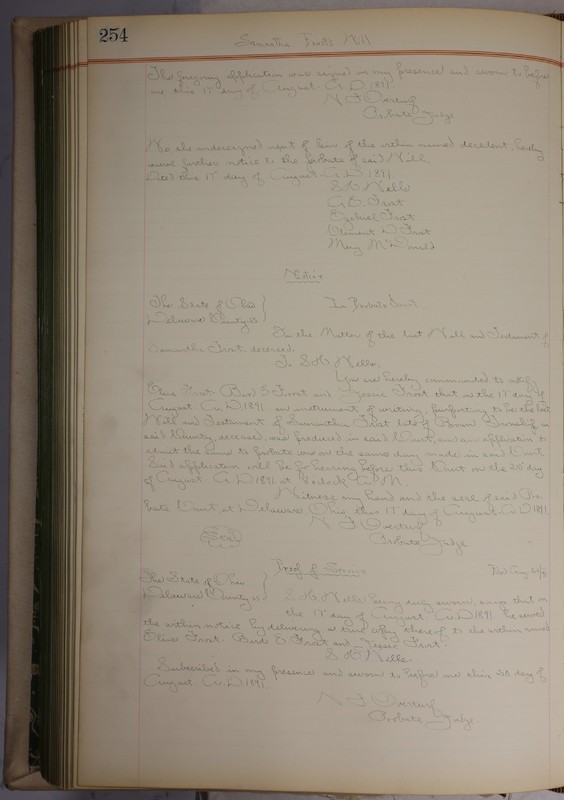 254
Samantha Frost's Will
The foregoing application was signed in my presence and sworn to before
me this 17" day of August A.D. 1891.
N F Overturf
Probate Judge
We the undersigned next of kin of the within named decedent, hereby
waive further notice to the probate of said Will.
Dated this 17" day of August A.D. 1891
S H Wells
Ezekiel Frost
Clement D Frost
Mary McDonald
Notice
The State of Ohio
Delaware County ss
In Probate Court
In the Matter of the last Will and Testament of
Samantha Frost deceased.
To S H Wells.
You are hereby commanded to notify
Oliver Frost Burt S Frost and Jesse Frost that on the 17" day of
August A.D. 1891 an instrument of writing, purporting to be the last
Will and Testament of Samantha Frost late of Township in
said County, deceased, was produced in said Court, and an application to
admit the same to probate was on the same day made in said Court.
Said application will be for hearing before this Court on the 20" day
of August A.D. 1891 at o'clock A.M.
Witness my hand and the seal of said Pro-
bate Court at Delaware, Ohio, this 17" day of August A.D. 1891.
N F Overturf
Probate Judge
Seal
Proof of Service
The State of Ohio
Delaware County ss
S H Wells being duly sworn, says that on
the 17" day of August A.D. 1891 he served
the within notice by delivering a true copy thereof to the within named
Oliver Frost Burt S Frost and Jesse Frost.
S H Wells
Subscribed in my presence and sworn to before me this 20 day of
August A.D. 1891
N F Overturf
Probate Judge